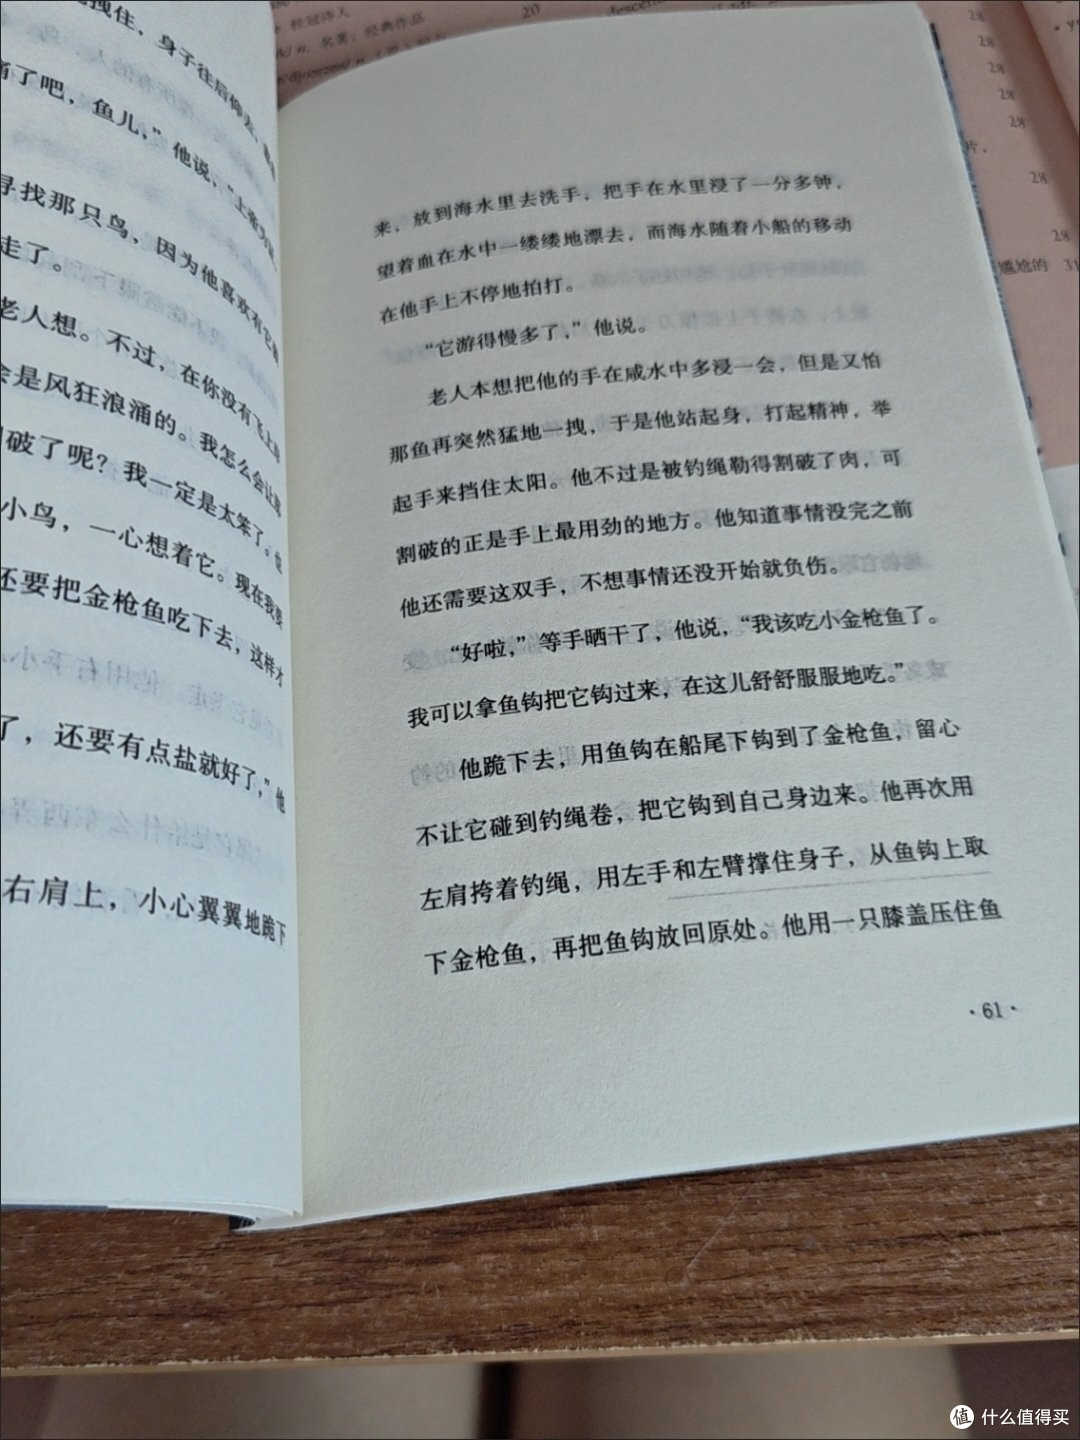 拽住，身子往后仰去，
痛了吧，鱼儿，”他说，“上帝
寻找那只鸟，因为他喜欢有它
走了。
老人想。不过，在你没有飞上
会是风狂浪涌的。我怎么会让
破了呢？我一定是太笨了。也
小鸟，一心想着它。现在我要
还要把金枪鱼吃下去，这样才
了，还要有点盐就好了，”他
右肩上，小心翼翼地跪下
来，放到海水里去洗手，把手在水里浸了一分多钟，
望着血在水中一缕缕地漂去，而海水随着小船的移动
在他手上不停地拍打。
“它游得慢多了，”他说。
老人本想把他的手在咸水中多浸一会，但是又怕
那鱼再突然猛地一拽，于是他站起身，打起精神，举
起手来挡住太阳。他不过是被钓绳勒得割破了肉，可
割破的正是手上最用劲的地方。他知道事情没完之前
他还需要这双手，不想事情还没开始就负伤。
“好啦，”等手晒干了，他说，“我该吃小金枪鱼了。
我可以拿鱼钩把它钩过来，在这儿舒舒服服地吃。”
他跪下去，用鱼钩在船尾下钩到了金枪鱼，留心
不让它碰到钓绳卷，把它钩到自己身边来。他再次用
左肩挎着钓绳，用左手和左臂撑住身子，从鱼钩上取
下金枪鱼，再把鱼钩放回原处。他用一只膝盖压住鱼
·61·
桂冠诗人 20
n. 名著；经典作品
28
28
28
28
片，
28
28
尴尬的 31
值 什么值得买